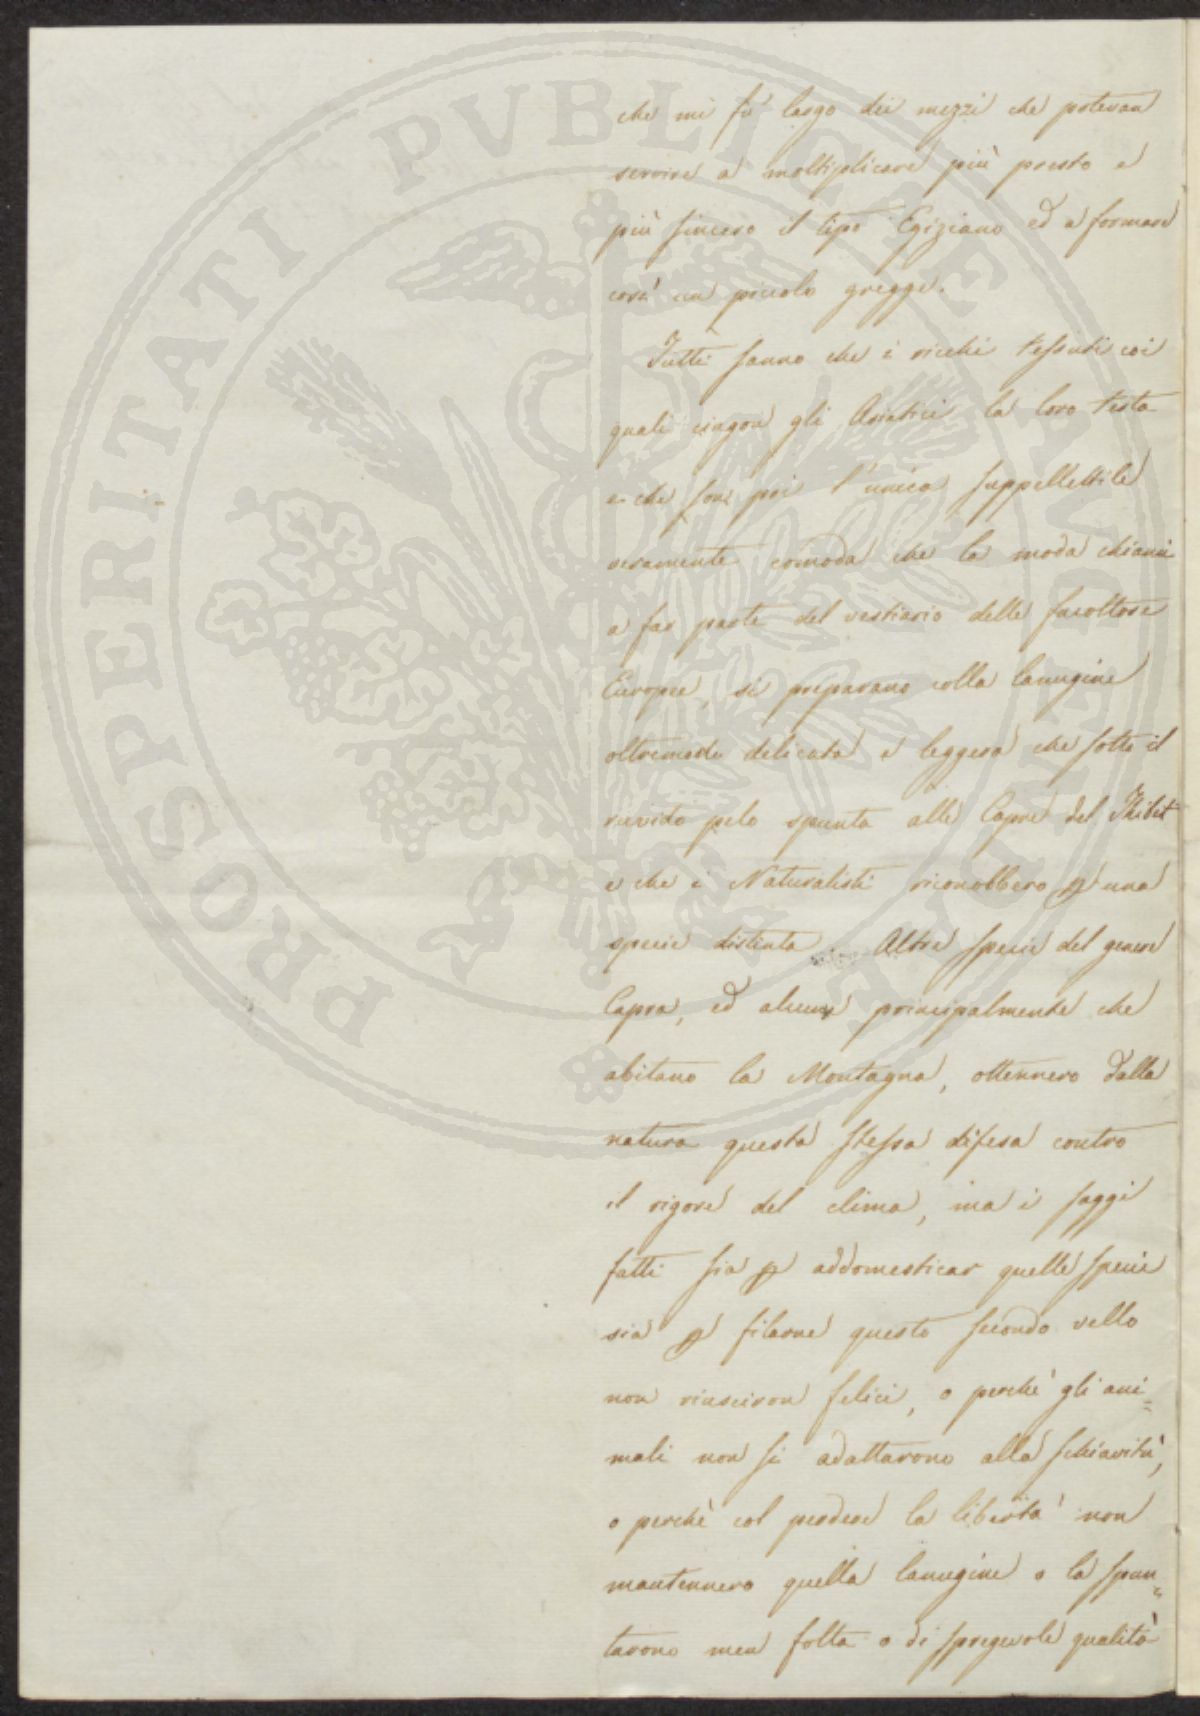 PROSPERITATI PVBLICAE AVGENDAE
che mi fu' largo dei mezzi che potevan
servire a moltiplicare più presto e
più sincero il tipo Egiziano ed a formare
così un piccolo gregge.
Tutti sanno che i ricchi tessuti coi
quali cingon gli Asiatici la loro testa
e che son poi l'unica suppellettile
veramente comoda che la moda chiami
a far parte del vestiario delle facoltose
Europee, si preparano colla lanugine
oltremodo delicata e leggera che sotto il
ruvido pelo spunta alle Capre del Thibet
e che i Naturalisti riconobbero p una
specie distinta. Altre specie del genere
Capra, ed alcune principalmente che
abitano la Montagna, ottennero dalla
natura questa stessa difesa contro
il rigore del clima, ma i saggi
fatti sia p addomesticar quelle specie
sia p filarne questo secondo vello
non riusciron felici, o perchè gli ani=
mali non si adattarono alla schiavitù,
o perchè col perdere la libertà non
mantennero quella lanugine o la spun=
tarono men folta o di spregevole qualità